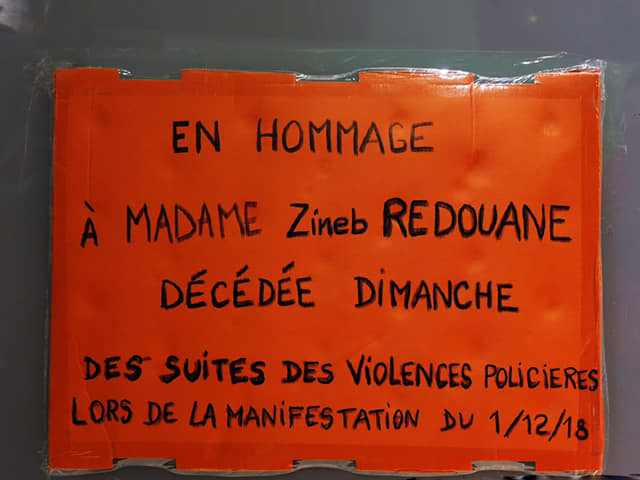 EN HOMMAGE
À MADAME Zineb REDOUANE
DÉCÉDÉE DIMANCHE
DES SUITES DES VIOLENCES POLICIERES
LORS DE LA MANIFESTATION DU 1/12/18